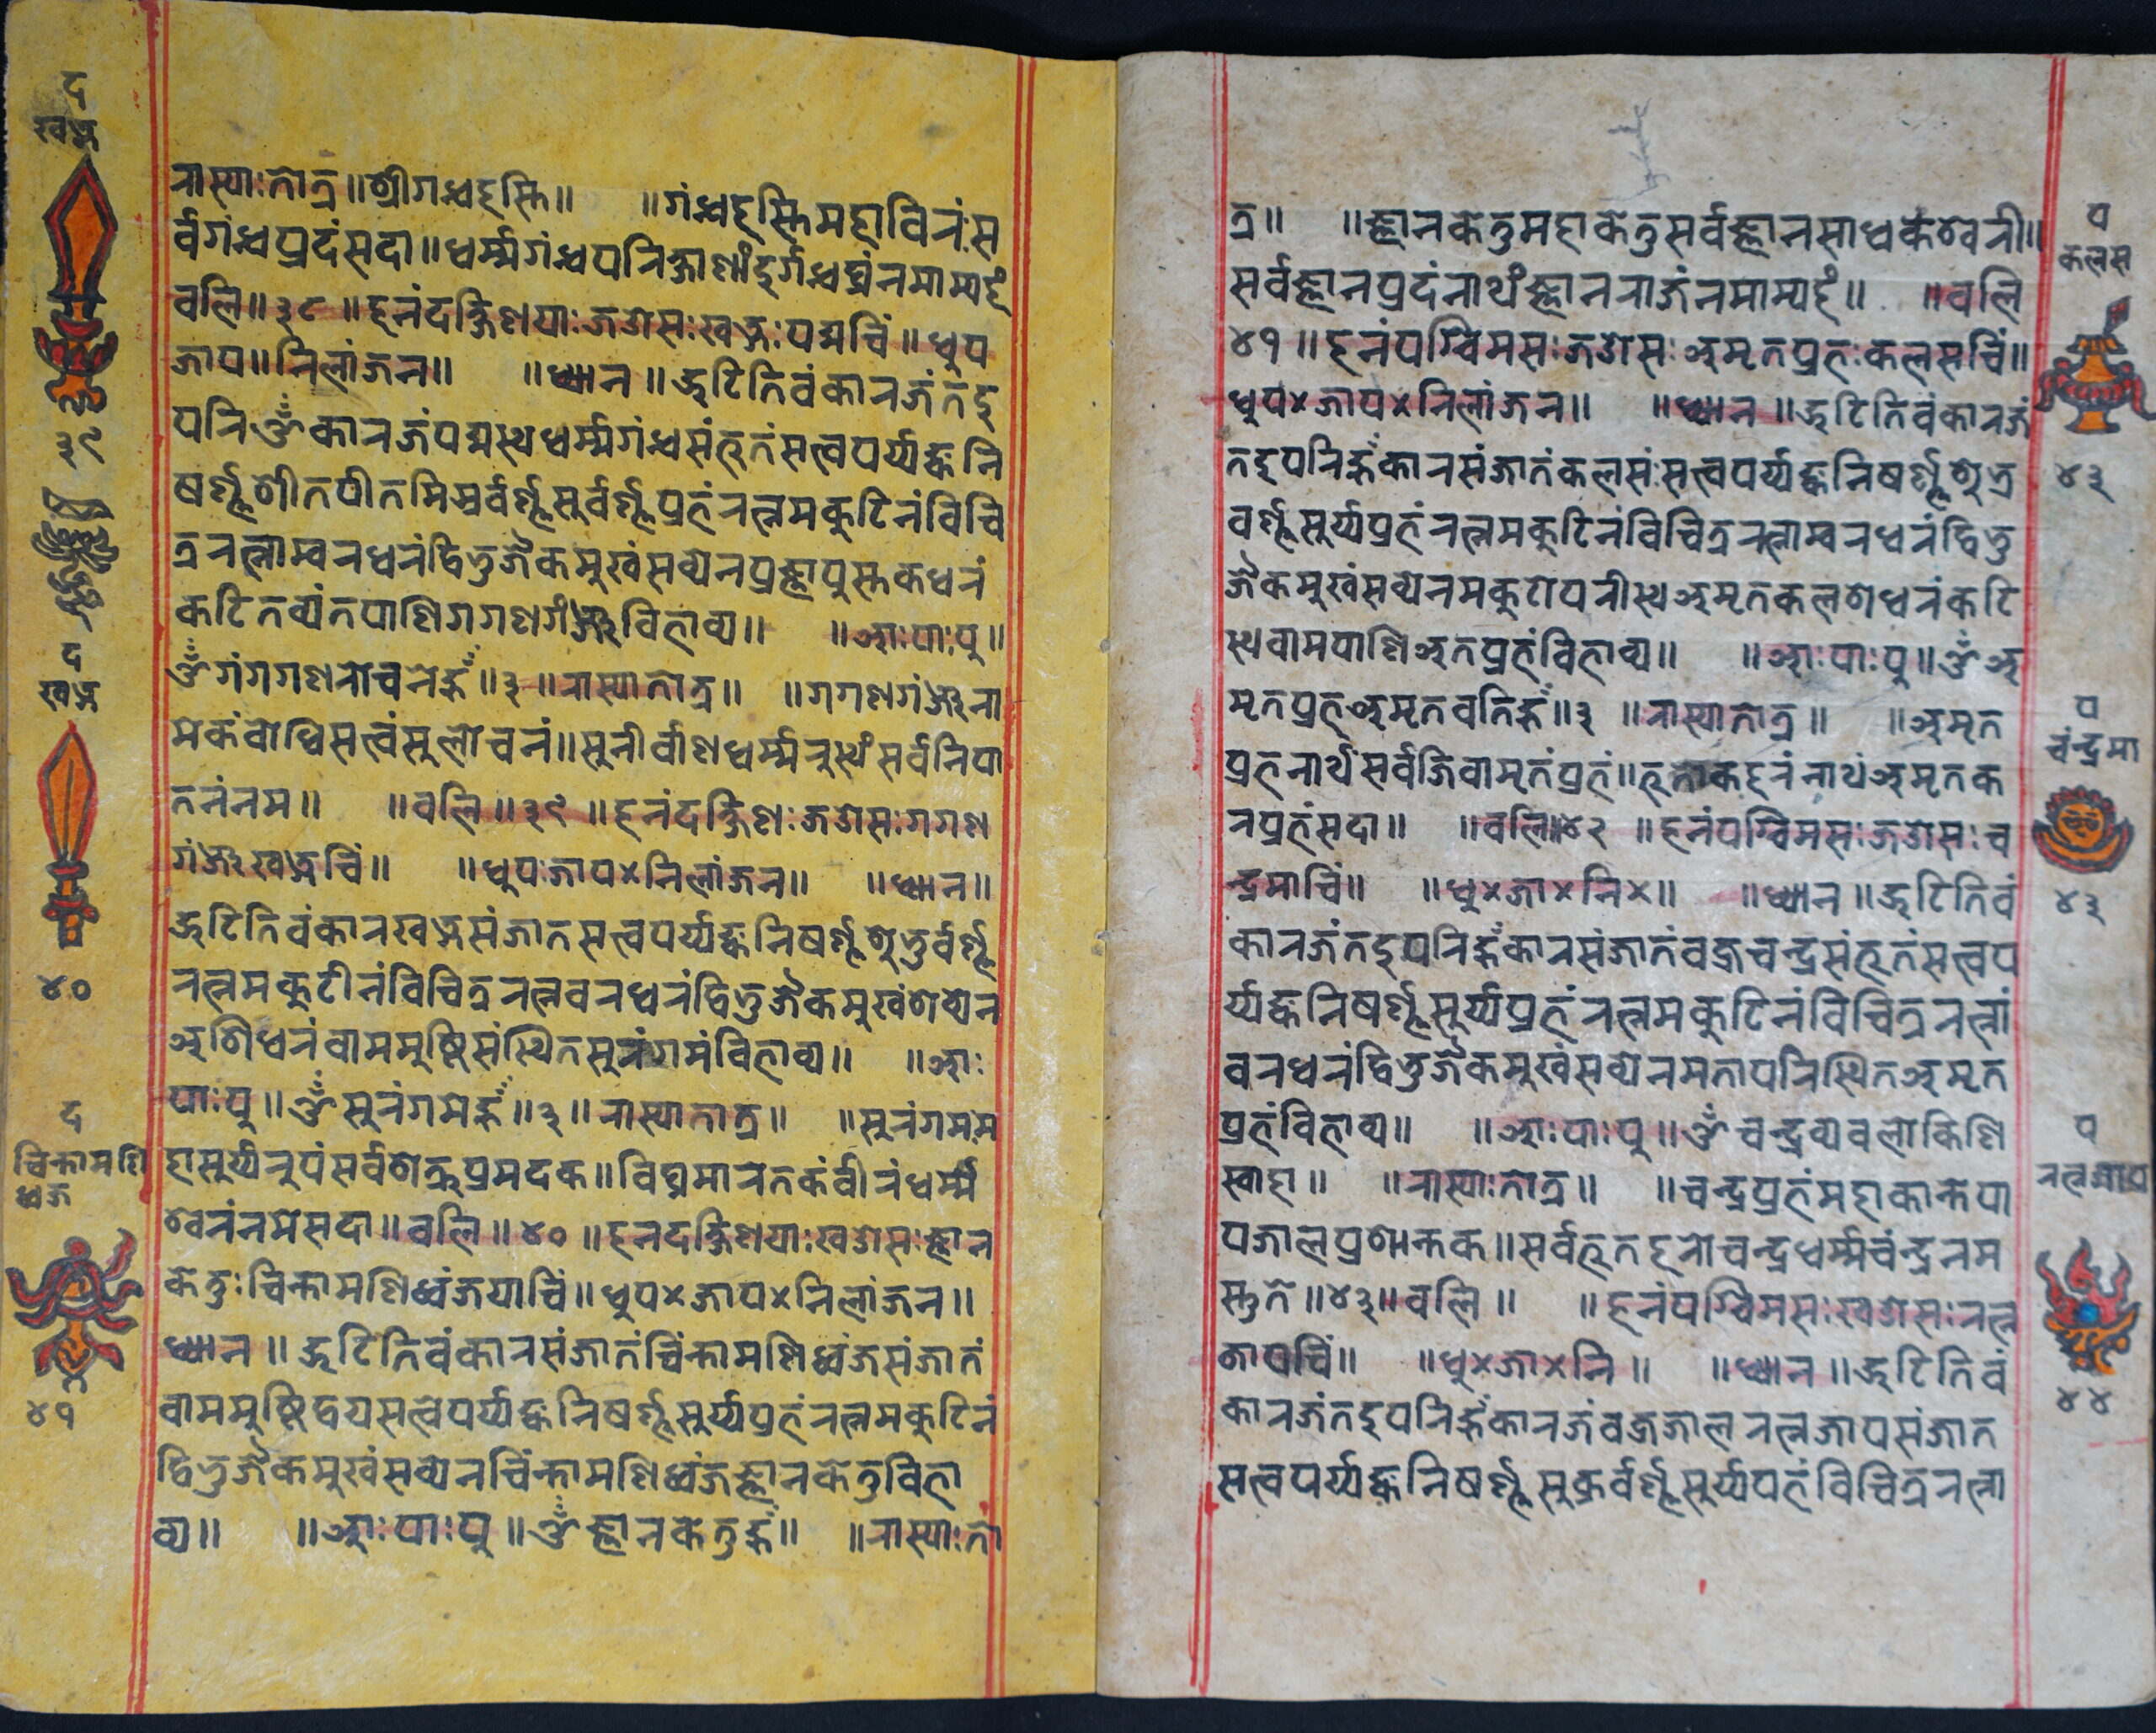 द
खड्ग
३९
द
खड्ग
४०
द
चिन्तामणि
ध्वज
४१
रास्याःतोत्र॥श्रीगन्धहस्ति॥ ॥गंन्धहस्तिमहाविरंःस
र्वगंन्धप्रदंसदा॥धर्म्मगंन्धपरिक्षाणांदुर्गन्धघ्नंनमाम्यहं
वलि॥३८॥हनंदक्षिणयाःजओसःखड्गःपद्मचिं॥धुप
जाप॥निलांजन॥ ॥ध्यान॥झटितिवंकारजंतदु
परिॐकारजंपद्मस्थधर्म्मगंन्धसंभूतंसत्वपर्य्यङ्कनि
षर्ण्णशीतपीतमिस्रवर्ण्णसुवर्ण्णप्रभंरत्नमकुटिनंविचि
त्ररत्नाम्वरधरंद्विभुजैकमुखंसव्येनप्रज्ञापुस्तकधरं
कटितव्यंतपाणिगगणगंञ्जविभाव्य॥ ॥आःपाःपु॥
ॐगंगगणरोचनेहूँ॥३॥रास्यातोत्र॥ ॥गगणगंञ्जना
मेकंवोधिसत्त्वंसुलोचनं॥सुनीर्वाणधर्म्मनुस्थंसर्वनिपा
तनंनम॥ ॥वलि॥३९॥हनंदक्षिणःजओसःगगण
गंञ्जखड्गचिं॥ ॥धुपःजाप×निलांजन॥ ॥ध्यान॥
झटितिवंकारखड्गसंजातसत्त्वपर्य्यङ्कनिषर्ण्णशुभ्रवर्ण्ण
रत्नमकुटीनंविचित्ररत्नवरधरंद्विभुजैकमुखंशव्येन
अशिधरंवाममुष्टिसंस्थितसुरंगमंविभाव्य॥ ॥आः
पाःपु॥ॐसुरंगमेहूँ॥३॥रास्यातोत्र॥ ॥सुरंगमम
हासुर्य्यरुपंसर्वशत्रुप्रमदक॥विघ्नमारंतकंवीरंधर्म्मे
श्वेरंनमेसदा॥वलि॥४०॥हनदक्षिणयाःखओसःज्ञान
केतुःचिन्तामणिध्वंजयाचिं॥धुप×जाप×निलांजन॥
ध्यान॥झटितिवंकारसंजातंचिंन्तामणिध्वंजसंजातं
वाममुष्टिद्वयसत्वेपर्य्यङ्कनिषर्ण्णसुर्य्यप्रभंरत्नमकुटिनं
द्विभुजैकमुखंसव्येनचिंन्तामणिध्वंजज्ञानकेतुविभा
व्य॥ ॥आःपाःपु॥ॐज्ञानकेतुहूँ॥ ॥रास्याःतो
त्र॥ ॥ज्ञानकेतुमहाकेतुसर्वज्ञानसाधकेश्वेरी॥
सर्वज्ञानप्रदंनाथंज्ञानराजंनमाम्यहं॥ ॥वलि
४१॥हनंपश्चिमसःजओसःअमृतप्रभःकलसचिं॥
धुप×जाप×निलांजन॥ ॥ध्यान॥झटितिवंकारजं
तदुपरिहूँकारसंजातंकलसंःसत्वपर्य्यङ्कनिषर्ण्णशुभ्र
वर्ण्णसुर्य्यप्रभंरत्नमकुटिनंविचित्ररत्नाम्वरधरंद्विभु
जैकमुखंसव्येनमकुटोपरीस्थअमृतकलशधरंकटि
स्थवामपाणिअतप्रभंविभाव्य॥ ॥आःपाःपु॥ॐअ
मृतप्रभअमृतवतिहूँ॥३॥रास्यातोत्र॥ ॥अमृत
प्रभनार्थंसर्वजिवामृतंप्रभं॥भूतोकहनंनाथंअमृतक
रप्रभंसदा॥ ॥वलि॥४२॥हनंपश्चिमसःजओसःच
न्द्रमाचिं॥ ॥धु×जा×नि×॥ ॥ध्यान॥झटितिवं
कारजंतदुपरिहूँकारसंजातंवज्रचन्द्रसंभूतंसत्वप
र्य्यङ्कनिषर्ण्णसुर्य्यप्रभंरत्नमकुटिनंविचित्ररत्नां
वरधरंद्विभुजैकमुखंसव्येनमतापरिस्थितअमृत
प्रभंविभाव्य॥ ॥आःपाःपु॥ॐचन्द्रव्यवलोकिणि
स्वाहा॥ ॥रास्याःतोत्र॥ ॥चन्द्रप्रभंमहाकान्तेपा
पजालप्रशान्तक॥सर्वभूतहरोचन्द्रधर्म्मचंन्द्रनम
स्तुते॥४३॥वलि॥ ॥हनंपश्चिमसःखओसःरत्न
जापचिं॥ ॥धु×जा×नि॥ ॥ध्यान॥झटितिवं
कारजंतदुपरिहूँकारजंवज्रजालरत्नजापसंजात
सत्वपर्य्यङ्कनिषर्ण्णसुक्रवर्ण्णसुर्य्यपभंविचित्ररत्ना
प
कलस
४३
प
चंन्द्रमा
४३
प
रत्नजाप
४४